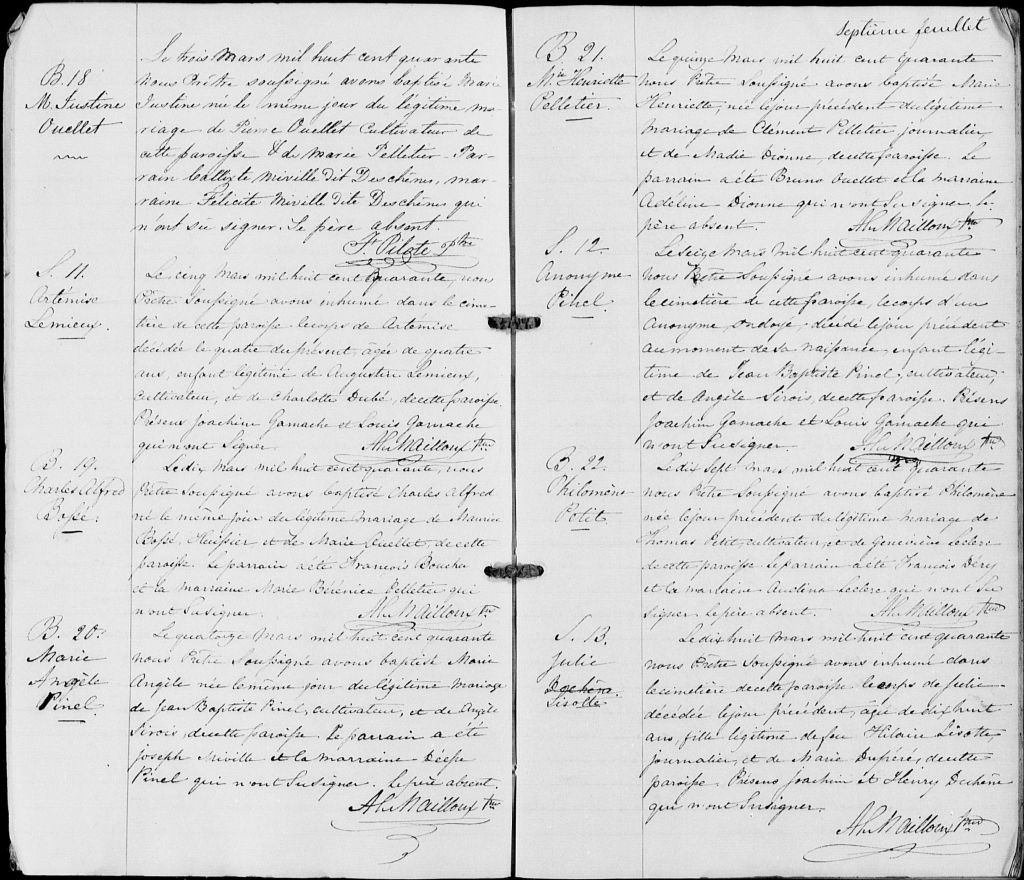 B. 18
M. Justine
Ouellet
Le trois Mars mil huit cent quarante
nous Prêtre soussigné avons baptisé Marie
Justine née le même jour du légitime ma-
riage de Pierre Ouellet Cultivateur de
cette paroisse & de Marie Pelletier. Par-
rain Callixte Miville dit Deschènes, mar-
raine Félicité Miville dite Deschènes qui
n'ont su signer. Le père absent.
Ft Pilote ptre
S. 11.
Artémise
Lemieux.
Le cinq Mars mil huit cent quarante, nous
Prêtre Soussigné avons inhumé dans le cime-
tière de cette paroisse le corps de Artémise
décédée le quatre du présent, âgée de quatre
ans, enfant légitime de Augustin Lemieux,
Cultivateur, et de Charlotte Dubé, de cette paroisse.
Présens Joachim Gamache et Louis Gamache
qui n'ont Signer.
Al. Mailloux Ptre
B. 19.
Charles Alfred
Bossé.
Le dix Mars mil huit cent quarante, nous
Prêtre Soussigné avons baptisé Charles Alfred
né le même jour du légitime mariage de Maurice
Bossé, Huissier et de Marie Ouellet, de cette
paroisse. Le parrain a été François Boucha
et la marraine Marie Bérénice Pelletier qui
n'ont Su signer.
Al. Mailloux Ptre
B. 20.
Marie
Angèle
Pinel.
Le quatorze Mars mil huit cent quarante
nous Prêtre Soussigné avons baptisé Marie
Angèle née le même jour du légitime Mariage
de Jean Baptiste Pinel, cultivateur, et de Angèle
Sirois, de cette paroisse. Le parrain a été
Joseph Miville et la marraine
Pinel qui n'ont Su signer. Le père absent.
Al. Mailloux Ptre
Septième feuillet
B. 21.
Mie Henriette
Pelletier.
Le quinze Mars mil huit cent quarante
nous Prêtre Soussigné avons baptisé Marie
Henriette, née le jour précédent du légitime
mariage de Clément Pelletier journalier,
et de Madie Dionne, de cette paroisse. Le
parrain a été Bruno Ouellet et la marraine
Adéline Dionne qui n'ont Su signer. Le
père absent.
Al. Mailloux Ptre
S. 12.
Anonyme
Pinel.
Le Seize Mars mil huit cent quarante
nous Prêtre Soussigné avons inhumé dans
le cimetière de cette paroisse, le corps d'un
Anonyme, ondoyé, décédé le jour précédent
au moment de sa naissance, enfant légi-
time de Jean Baptiste Pinel, cultivateur,
et de Angèle Sirois, de cette paroisse. Présens
Joachim Gamache et Louis Gamache qui
n'ont Su signer.
Al. Mailloux Ptre
B. 22.
Philomène
Petit
Le dix Sept Mars mil huit cent quarante
nous Prêtre Soussigné avons baptisé Philomène
née le jour précédent du légitime mariage de
Thomas Petit, cultivateur, et de Geneviève Leclerc
de cette paroisse. Le parrain a été François Déry
et la marraine Leclerc qui n'ont Su
Signer. Le père absent.
Al. Mailloux Ptre
S. 13.
Julie
Lisotte
Le dix huit Mars mil huit cent quarante
nous Prêtre Soussigné avons inhumé dans
le cimetière de cette paroisse le corps de Julie
décédée le jour précédent, âgée de dix huit
ans, fille légitime de feu Hilaire Lisotte
journalier, et de Marie Dupéré, de cette
paroisse. Présens Joachim et Henry Duchêne
qui n'ont Su signer.
Al. Mailloux Ptre